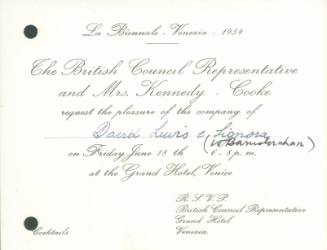 La Biennale - Venezia - 1954
The British Council Representative
and Mrs. Kennedy - Cooke
request the pleasure of the company of
David Lewis e Signora
(W Barns Graham)
on Friday June 18th 6-8 p.m.
at the Grand Hotel, Venice
R.S.V.P
British Council Representative
Grand Hotel
Venezia
Cocktails